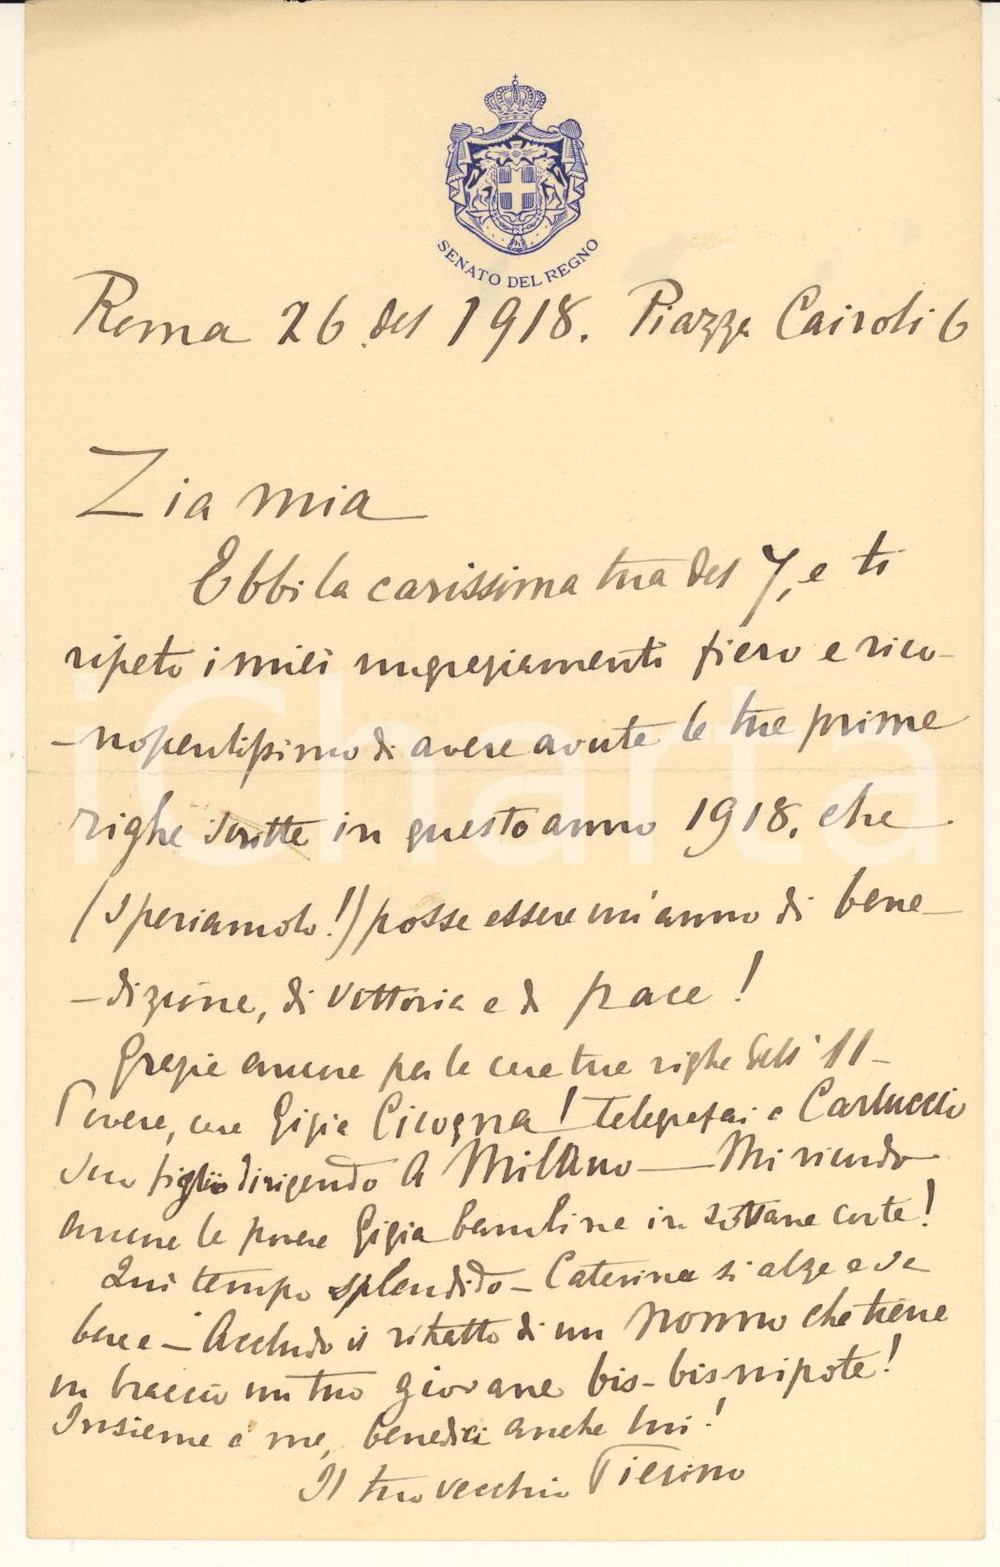 SENATO DEL REGNO
Roma 26 del 1918. Piazza Cairoli 6
Zia mia
Ebbi la carissima tua del 7, e ti
ripeto i miei ringraziamenti fiero e rico-
-noscentissimo di avere avute le tue prime
righe scritte in questo anno 1918. che
(speriamolo!) possa essere un'anno di bene-
-dizione, di vittoria e di pace!
Grazie ancora per le care tue righe dell'11-
Povera, cara Gigia Cicogna! Telegrafai a Carluccio
suo figlio dirigendo a Milano - Mi ricordo
ancora la povera Gigia bambina in sottane corte!
Qui tempo splendido - Caterina si alza e va
bene - Accludo il ritratto di un nonno che tiene
in braccio un tuo giovane bis-bisnipote!
Insieme a me, benedici anche lui!
Il tuo vecchio Pierino
iCharta